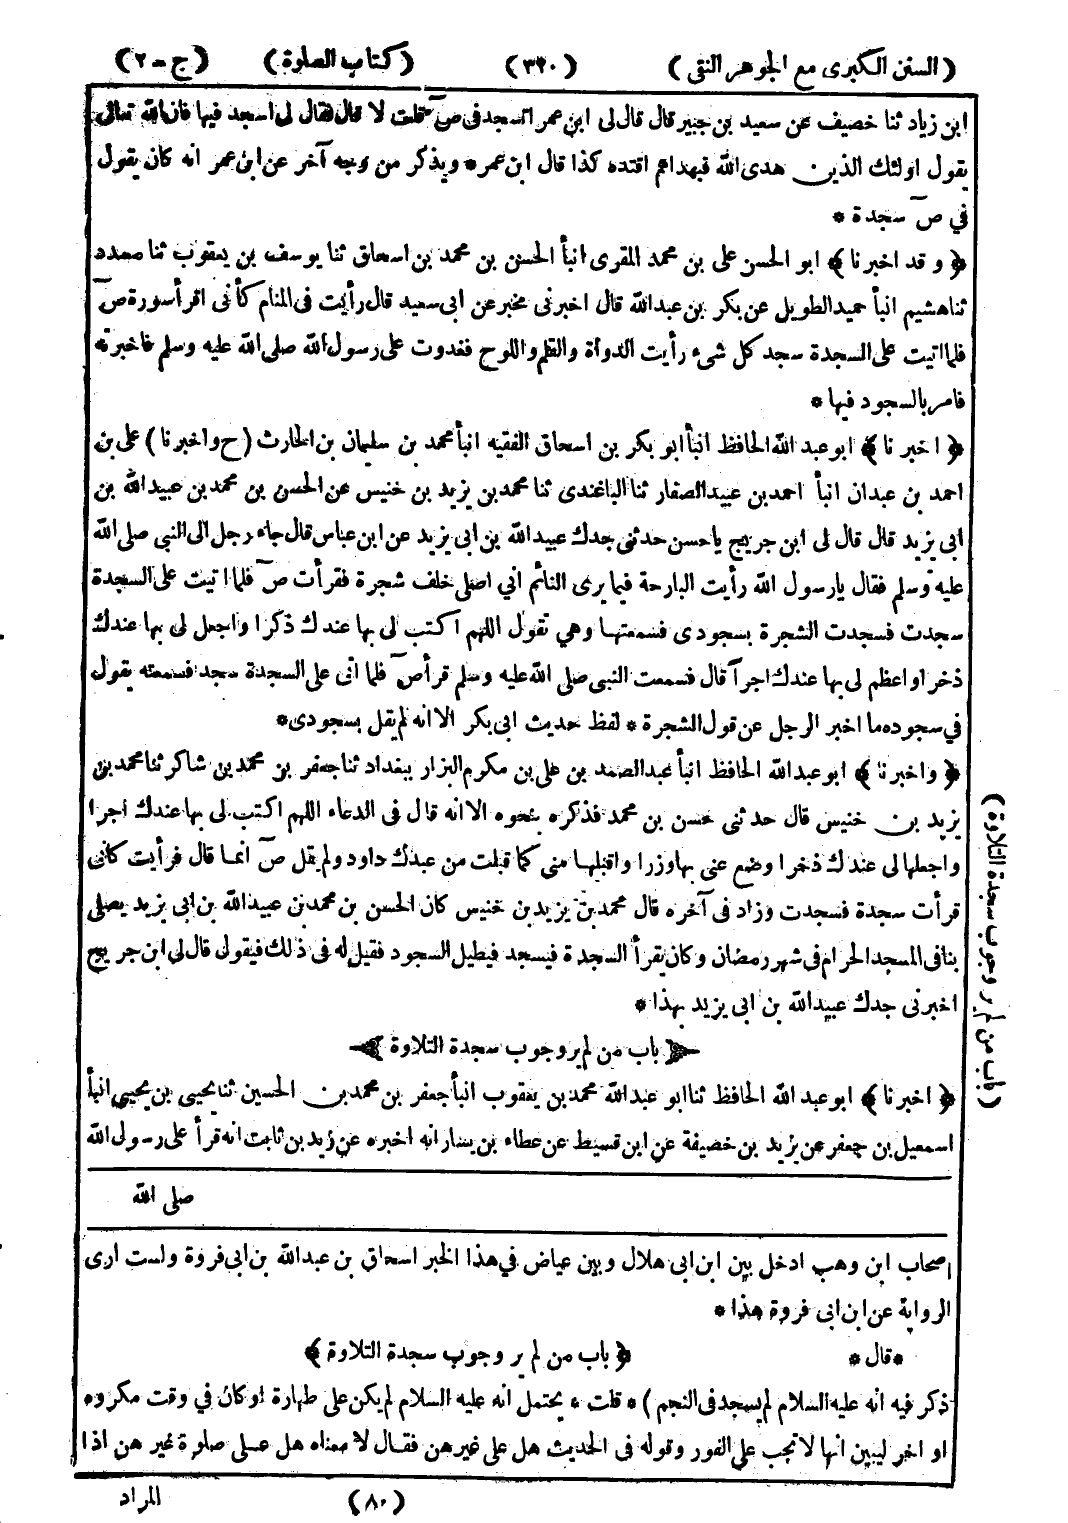 (السنن الكبرى مع الجوهر النقى) (٣٢٠) (كتاب الصلوة) (ج-٢)
ابن زياد ثنا خصيف عن سعيد بن جبير قال قال لى ابن عمر اتسجد فى صٓ قلت لا قال فقال لى اسجد فيها فان الله تعالى
يقول اولئك الذين هدى الله فبهداهم اقتده كذا قال ابن عمر* ويذكر من وجه آخر عن ابن عمر انه كان يقول
في صٓ سجدة *
﴿وقد اخبرنا﴾ ابو الحسن على بن محمد المقرى انبأ الحسن بن محمد بن اسحاق ثنا يوسف بن يعقوب ثنا مسدد
ثنا هشيم انبأ حميد الطويل عن بكر بن عبدالله قال اخبرنى مخبر عن ابى سعيد قال رأيت فى المنام كأنى اقرأ سورة صٓ
فلما اتيت على السجدة سجد كل شىء رأيت الدواة والقلم واللوح فغدوت على رسول الله صلى الله عليه وسلم فاخبرته
فامر بالسجود فيها *
﴿اخبرنا﴾ ابو عبد الله الحافظ انبأ ابو بكر بن اسحاق الفقيه انبأ محمد بن سليمان بن الحارث (ح واخبرنا) على بن
احمد بن عبدان انبأ احمد بن عبيد الصفار ثنا الباغندى ثنا محمد بن يزيد بن خنيس عن الحسن بن محمد بن عبيدالله بن
ابى يزيد قال قال لى ابن جريج ياحسن حدثنى جدك عبيد الله بن ابى يزيد عن ابن عباس قال جاء رجل الى النبى صلى الله
عليه وسلم فقال يارسول الله رأيت البارحة فيما يرى النائم اني اصلى خلف شجرة فقرأت صٓ فلما اتيت على السجدة
سجدت فسجدت الشجرة بسجودى فسمعتها وهي تقول اللهم اكتب لى بها عندك ذكرا واجعل لى بها عندك
ذخرا واعظم لى بها عندك اجراً قال فسمعت النبى صلى الله عليه وسلم قرأ صٓ فلما اتى على السجدة سجد فسمعته يقول
في سجوده ما اخبر الرجل عن قول الشجرة * لفظ حديث ابى بكر الا انه لم يقل بسجودى*
﴿واخبرنا﴾ ابو عبدالله الحافظ انبأ عبدالصمد بن على بن مكرم البزار ببغداد ثنا جعفر بن محمد بن شاكر ثنا محمد بن
يزيد بن خنيس قال حدثنى حسن بن محمد فذكره بنحوه الا انه قال فى الدعاء اللهم اكتب لى بها عندك اجرا
واجعلها لى عندك ذخرا وضع عنى بها وزرا واقبلها منى كما قبلت من عبدك داود ولم يقل صٓ انما قال فرأيت كانى
قرأت سجدة فسجدت وزاد فى آخره قال محمد بن يزيد بن خنيس كان الحسن بن محمد بن عبيد الله بن ابى يزيد يصلى
بنا فى المسجد الحرام فى شهر رمضان وكان يقرأ السجدة فيسجد فيطيل السجود فقيل له فى ذلك فيقول قال لى ابن جريج
اخبرنى جدك عبيدالله بن ابى يزيد بهذا *
﴿باب من لم ير وجوب سجدة التلاوة﴾
﴿اخبرنا﴾ ابو عبد الله الحافظ ثنا ابو عبدالله محمد بن يعقوب انبأ جعفر بن محمد بن الحسين ثنا يحيى بن يحيى انبأ
اسمعيل بن جعفر عن يزيد بن خصيفة عن ابن قسيط عن عطاء بن يسار انه اخبره عن زيد بن ثابت انه قرأ على رسول الله
صلى الله
(باب من لم ير وجوب سجدة التلاوة)
اصحاب ابن وهب ادخل بين ابن ابى هلال وبين عياض في هذا الخبر اسحاق بن عبدالله بن ابى فروة ولست ارى
الرواية عن ابن ابى فروة هذا *
*قال* ﴿باب من لم ير وجوب سجدة التلاوة﴾
ذكر فيه انه عليه السلام لم يسجد فى النجم) * قلت * يحتمل انه عليه السلام لم يكن على طهارة او كان في وقت مكروه
او اخر ليبين انها لا تجب على الفور وقوله فى الحديث هل على غيرهن فقال لا معناه هل على صلوة غيرهن اذا
المراد (٨٠)